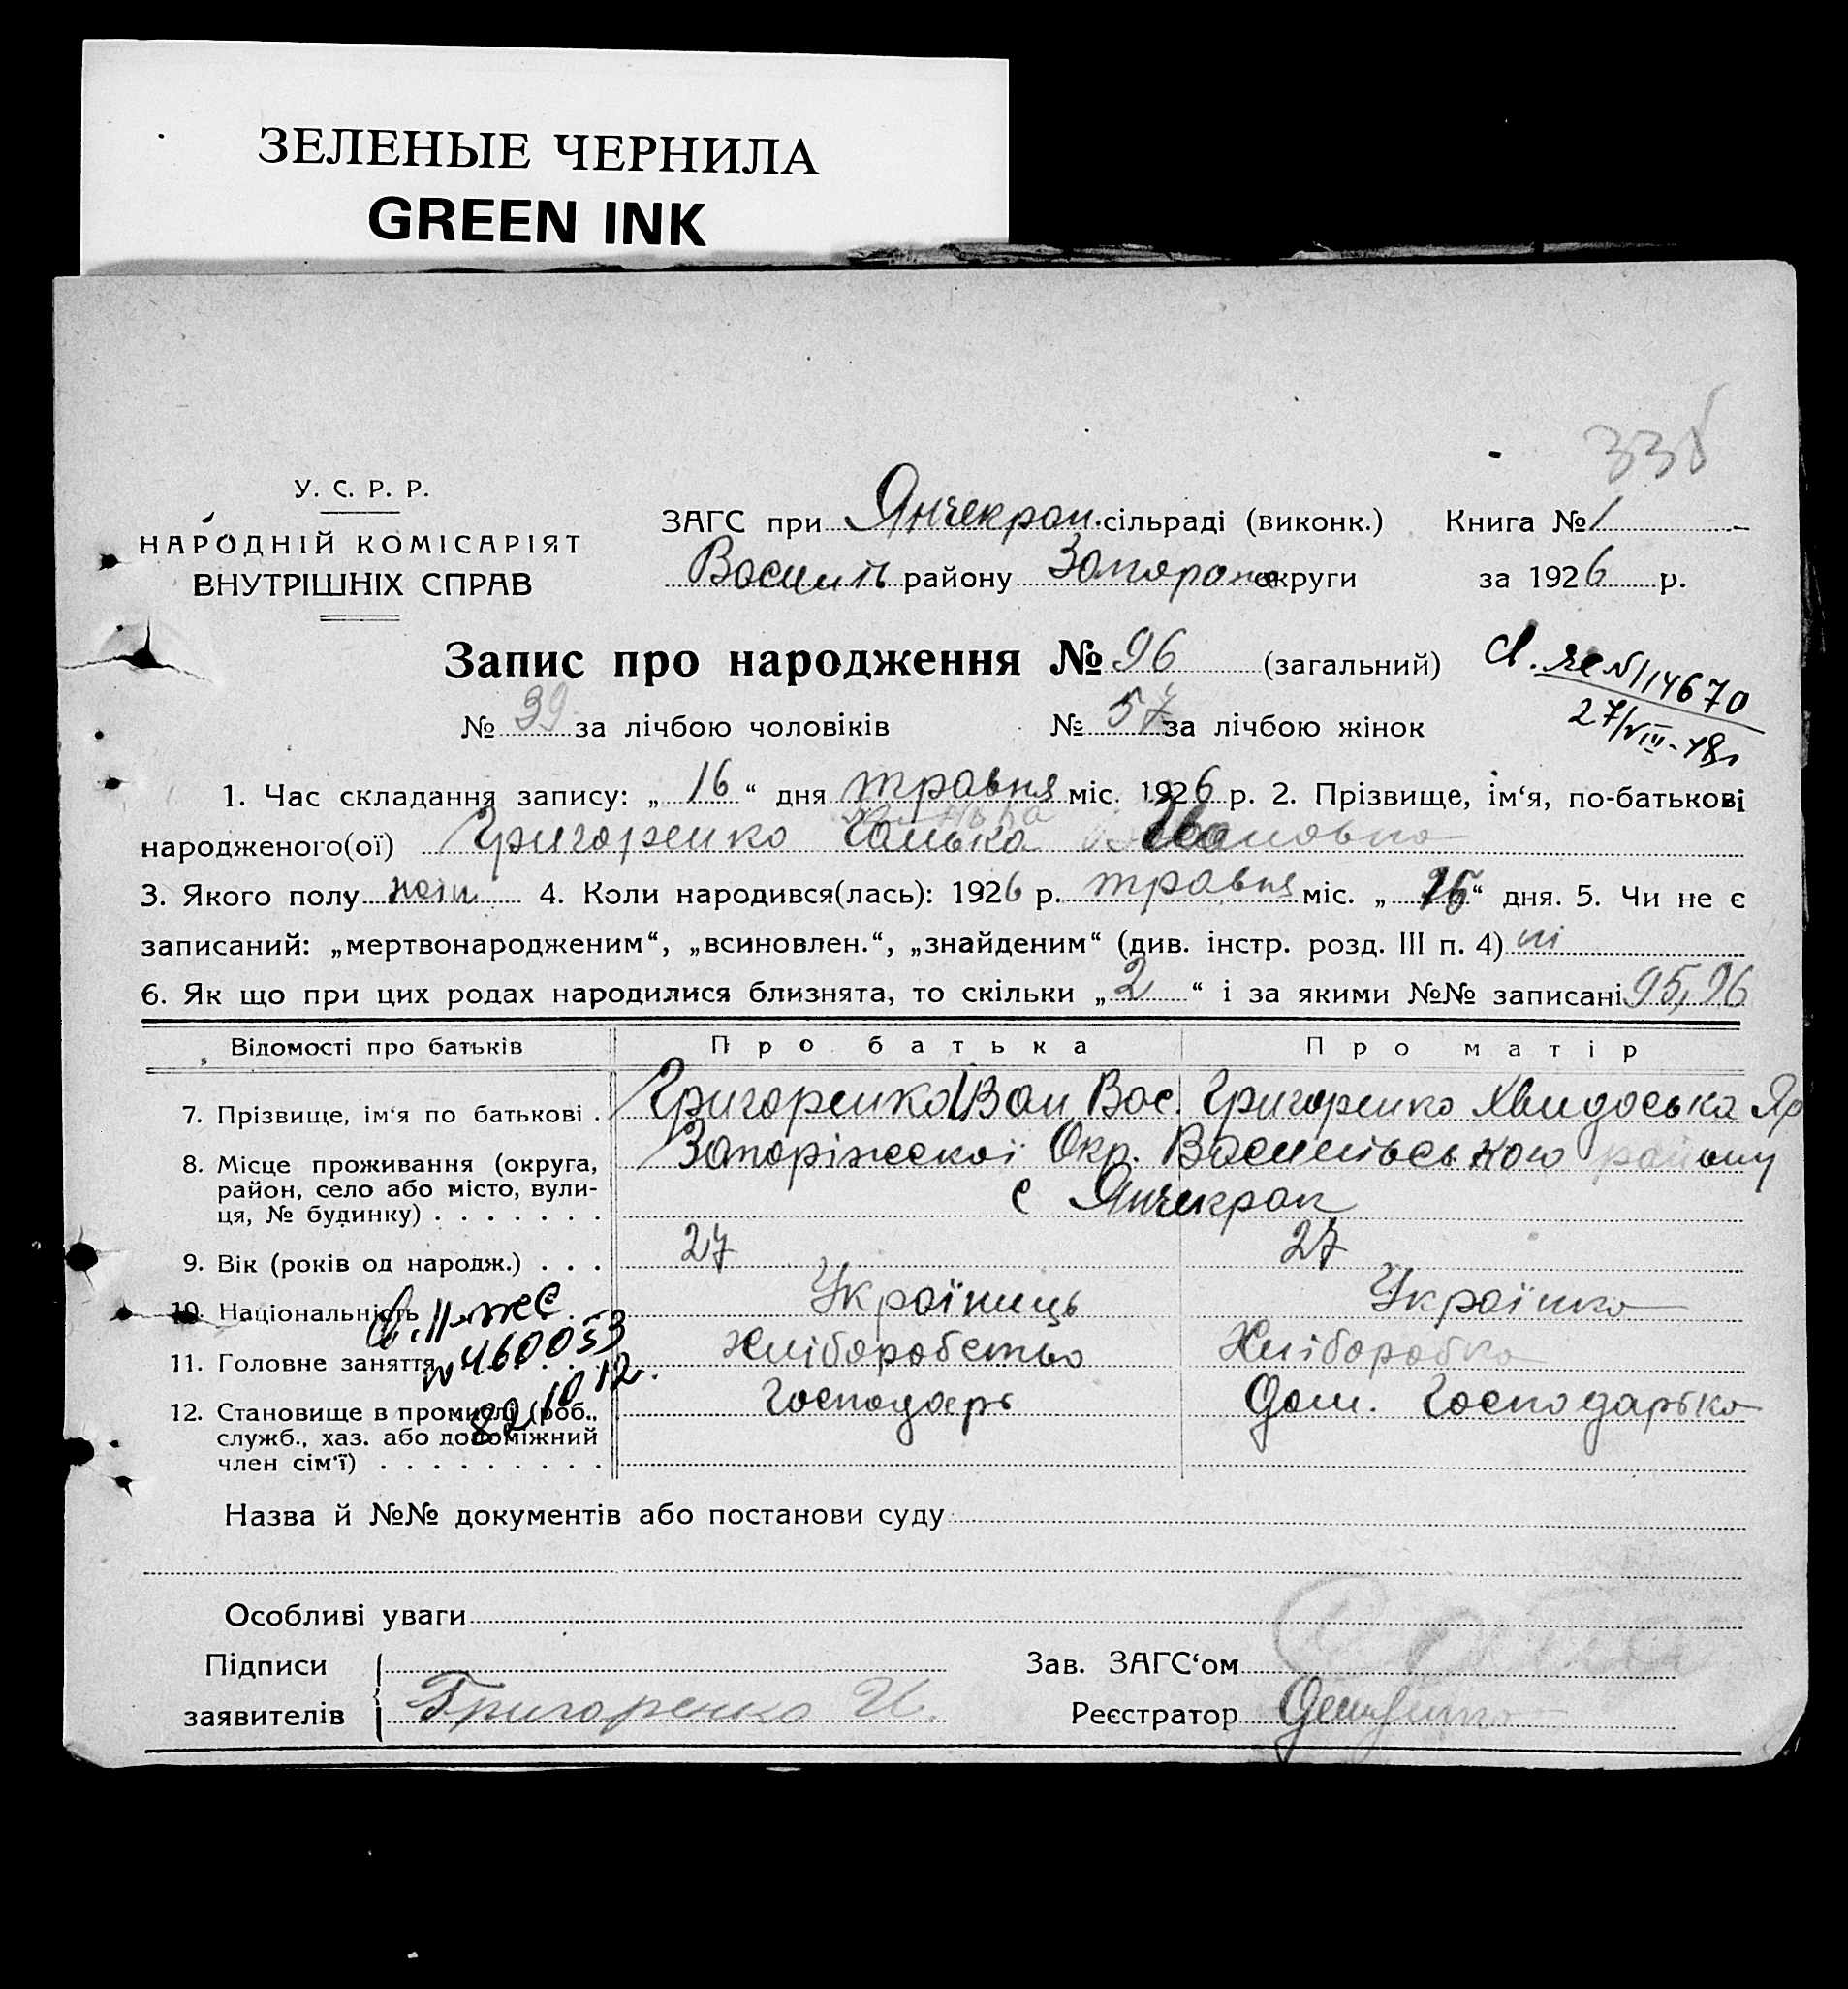 ЗЕЛЕНЫЕ ЧЕРНИЛА
GREEN INK
336
У. С. Р. Р.
НАРОДНІЙ КОМІСАРІЯТ
ВНУТРІШНІХ СПРАВ
ЗАГС при Янчекрак. сільраді (виконк.) Книга № 1
Василів району Запорож округи за 1926 р.
Запис про народження № 96 (загальний)
№ 39 за лічбою чоловіків № 57 за лічбою жінок
114670
27/VIII-48
1. Час складання запису: „ 16 “ дня травня міс. 1926 р. 2. Прізвище, ім‘я, по-батькові
народженого(ої) Григоренко Галька Івановна
3. Якого полу жін 4. Коли народився(лась): 1926 р. травня міс. „ “ дня. 5. Чи не є
записаний: „мертвонародженим“, „всиновлен.“, „знайденим“ (див. інстр. розд. III п. 4) ні
6. Як що при цих родах народилися близнята, то скільки „ 2 “ і за якими №№ записані 95, 96
Відомості про батьків Про батька Про матір
7. Прізвище, ім‘я по батькові . Григоренко Іван Вас. Григоренко Хвидоська Яр
8. Місце проживання (округа, район, село або місто, вули-ця, № будинку) . . . . . . . Запоріжської Окр. Василівського району
с Янчекрак
9. Вік (років од народж.) . . . 27 27
10. Національність Українець Українка
11. Головне заняття Хліборобство Хліборобка
№ 460053
12. Становище в промислі (роб., служб., хаз. або допоміжний член сім‘ї) . . . . . . . . . Господарь Дом. Господарька
82 10 12.
Назва й №№ документів або постанови суду
Особливі уваги
Підписи Зав. ЗАГС‘ом
заявителів Григоренко И. Реєстратор